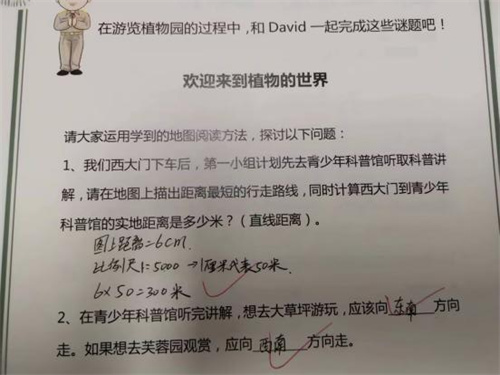 在游览植物园的过程中，和 David 一起完成这些谜题吧！
欢迎来到植物的世界
请大家运用学到的地图阅读方法，探讨以下问题：
1、我们西大门下车后，第一小组计划先去青少年科普馆听取科普讲
解，请在地图上描出距离最短的行走路线，同时计算西大门到青少年
科普馆的实地距离是多少米？（直线距离）。
图上距离=6cm
比例尺1:5000→1厘米代表50米.
6×50=300米
2、在青少年科普馆听完讲解，想去大草坪游玩，应该向 东南 方向
走。如果想去芙蓉园观赏，应向 西南 方向走。